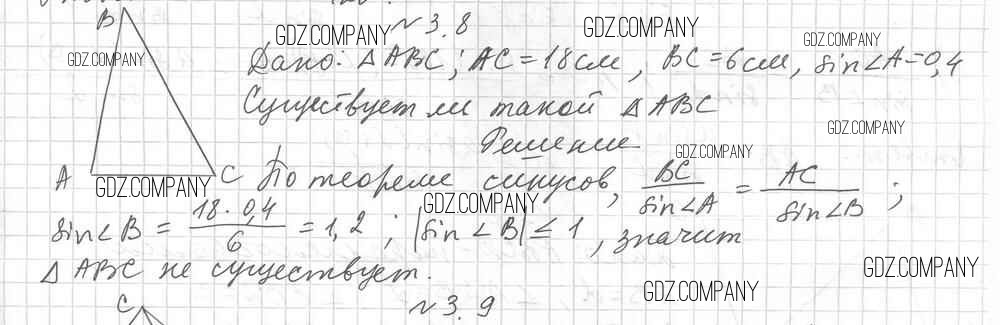 №3.8
B
Дано: △ABC; AC=18см, BC=6см, sin∠A=0,4
Существует ли такой △ABC
Решение
A C По теореме синусов, BC/sin∠A = AC/sin∠B ;
sin∠B = 18·0,4/6 = 1,2 ; |sin∠B| ≤ 1 , значит
△ABC не существует.
C №3.9
GDZ.COMPANY
GDZ.COMPANY
GDZ.COMPANY
GDZ.COMPANY
GDZ.COMPANY
GDZ.COMPANY
GDZ.COMPANY
GDZ.COMPANY
GDZ.COMPANY
GDZ.COMPANY